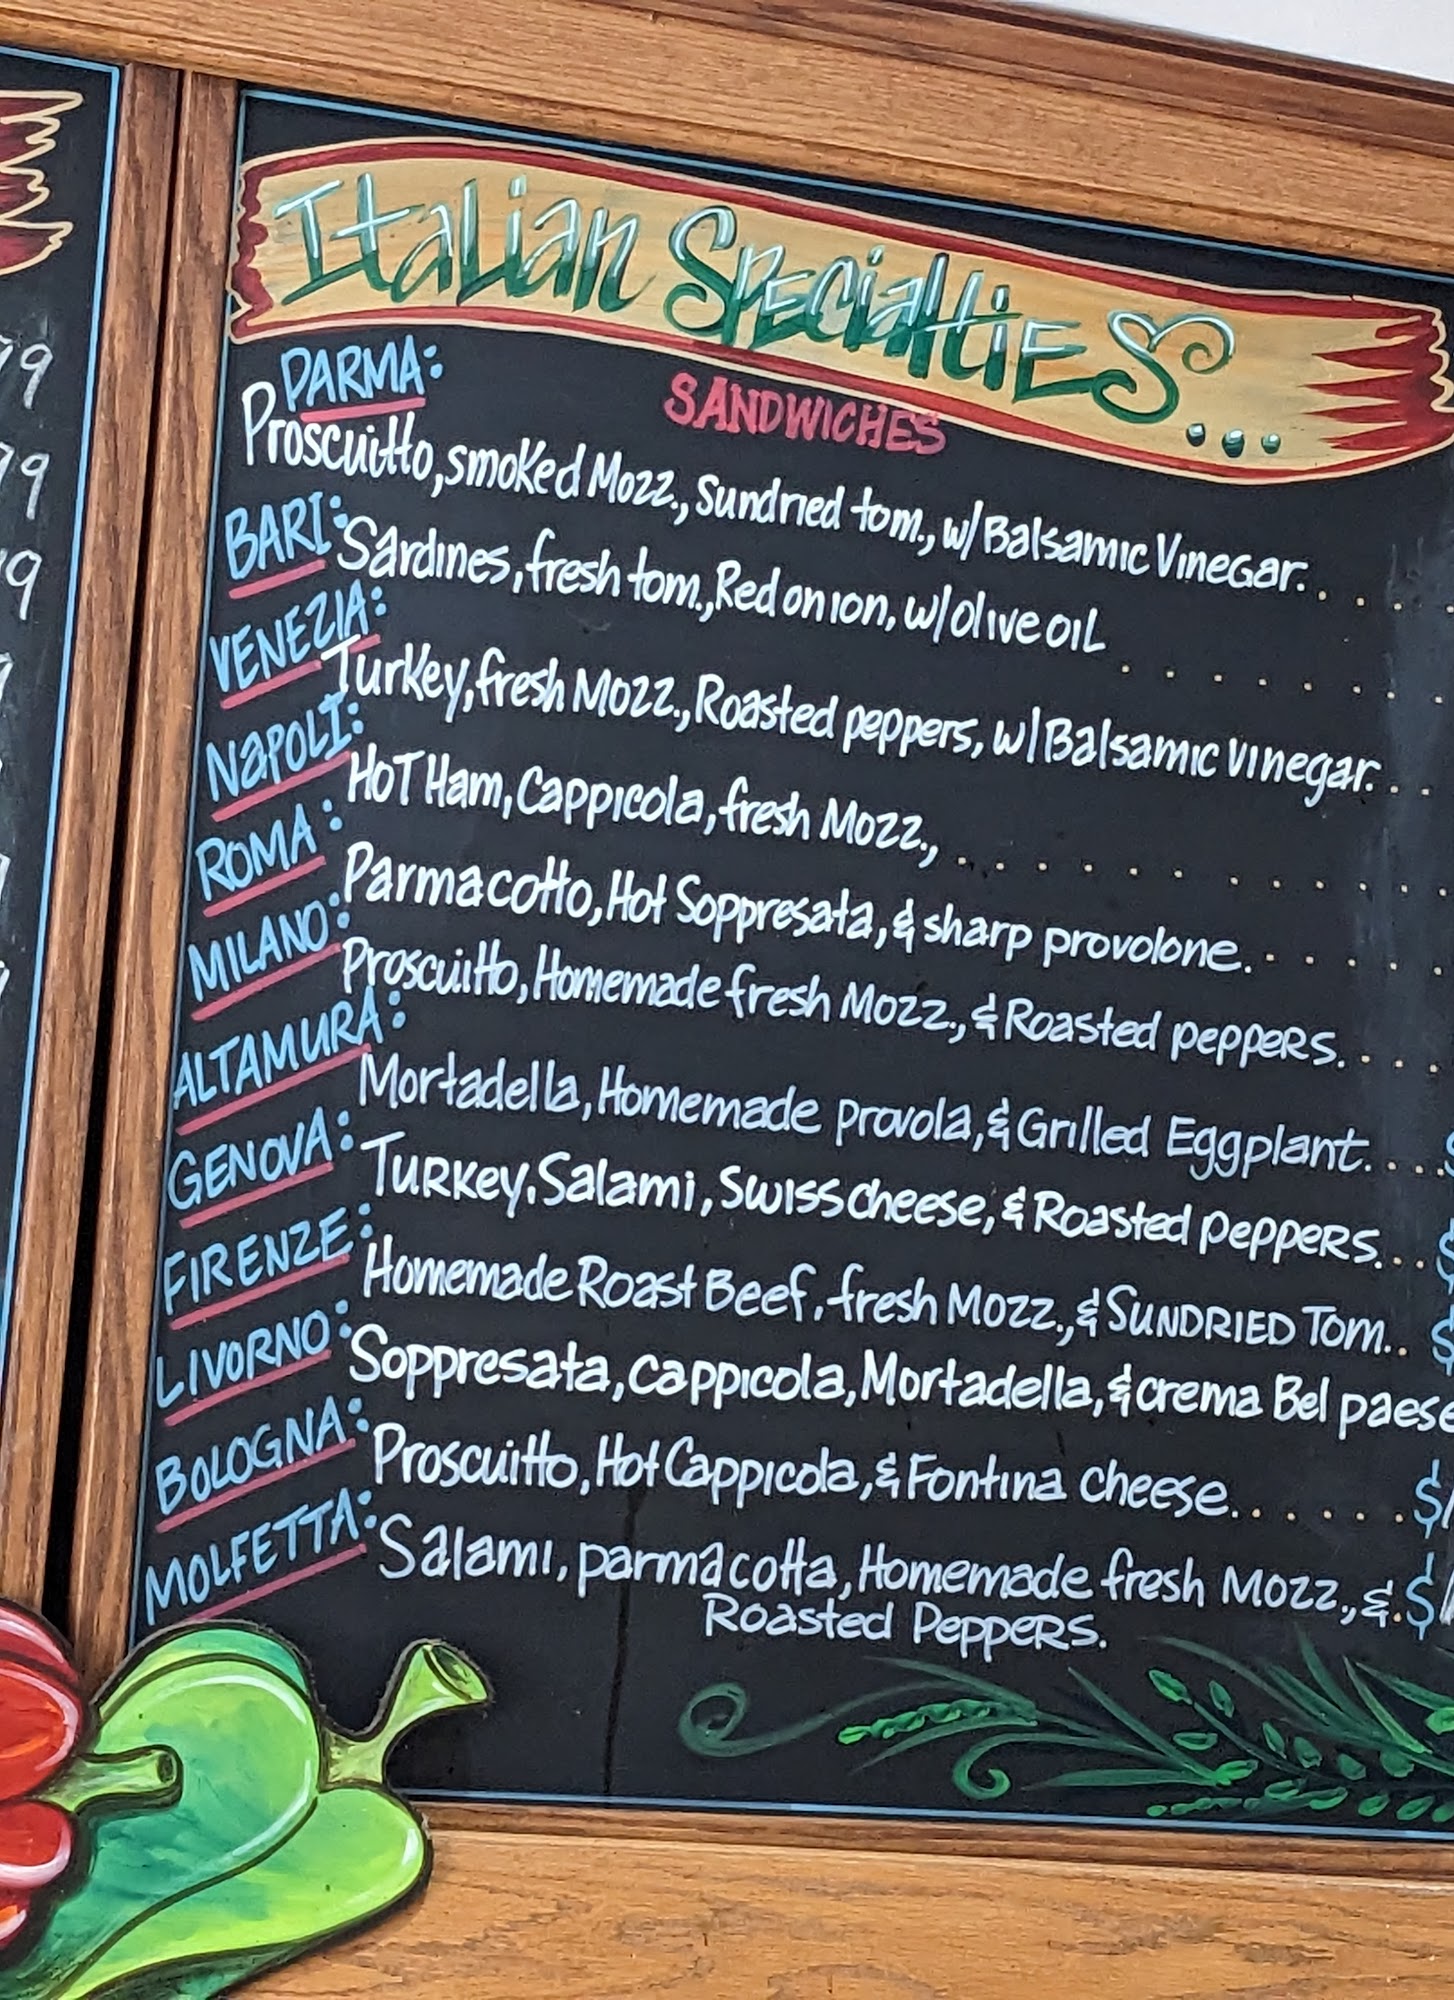 Italian Specialties...
SANDWICHES
PARMA:
Proscuitto, smoked Mozz., Sundried tom., w/ Balsamic Vinegar. . . . .
BARI: Sardines, fresh tom., Red onion, w/ olive oil . . . . . . .
VENEZIA: Turkey, fresh Mozz., Roasted peppers, w/ Balsamic Vinegar. . .
NAPOLI: HOT Ham, Cappicola, fresh Mozz., . . . . . . . . . .
ROMA: Parmacotto, Hot Soppresata, & sharp provolone. . . . . .
MILANO: Proscuitto, Homemade fresh Mozz., & Roasted peppers. . . . .
ALTAMURA: Mortadella, Homemade provola, & Grilled Eggplant. . . . .
GENOVA: Turkey, Salami, Swiss cheese, & Roasted peppers. . . $
FIRENZE: Homemade Roast Beef, fresh Mozz., & Sundried Tom. . . $
LIVORNO: Soppresata, cappicola, Mortadella, & crema Bel paese
BOLOGNA: Proscuitto, Hot Cappicola, & Fontina cheese. . . . . . $
MOLFETTA: Salami, parmacotta, Homemade fresh Mozz., & . $
Roasted Peppers.